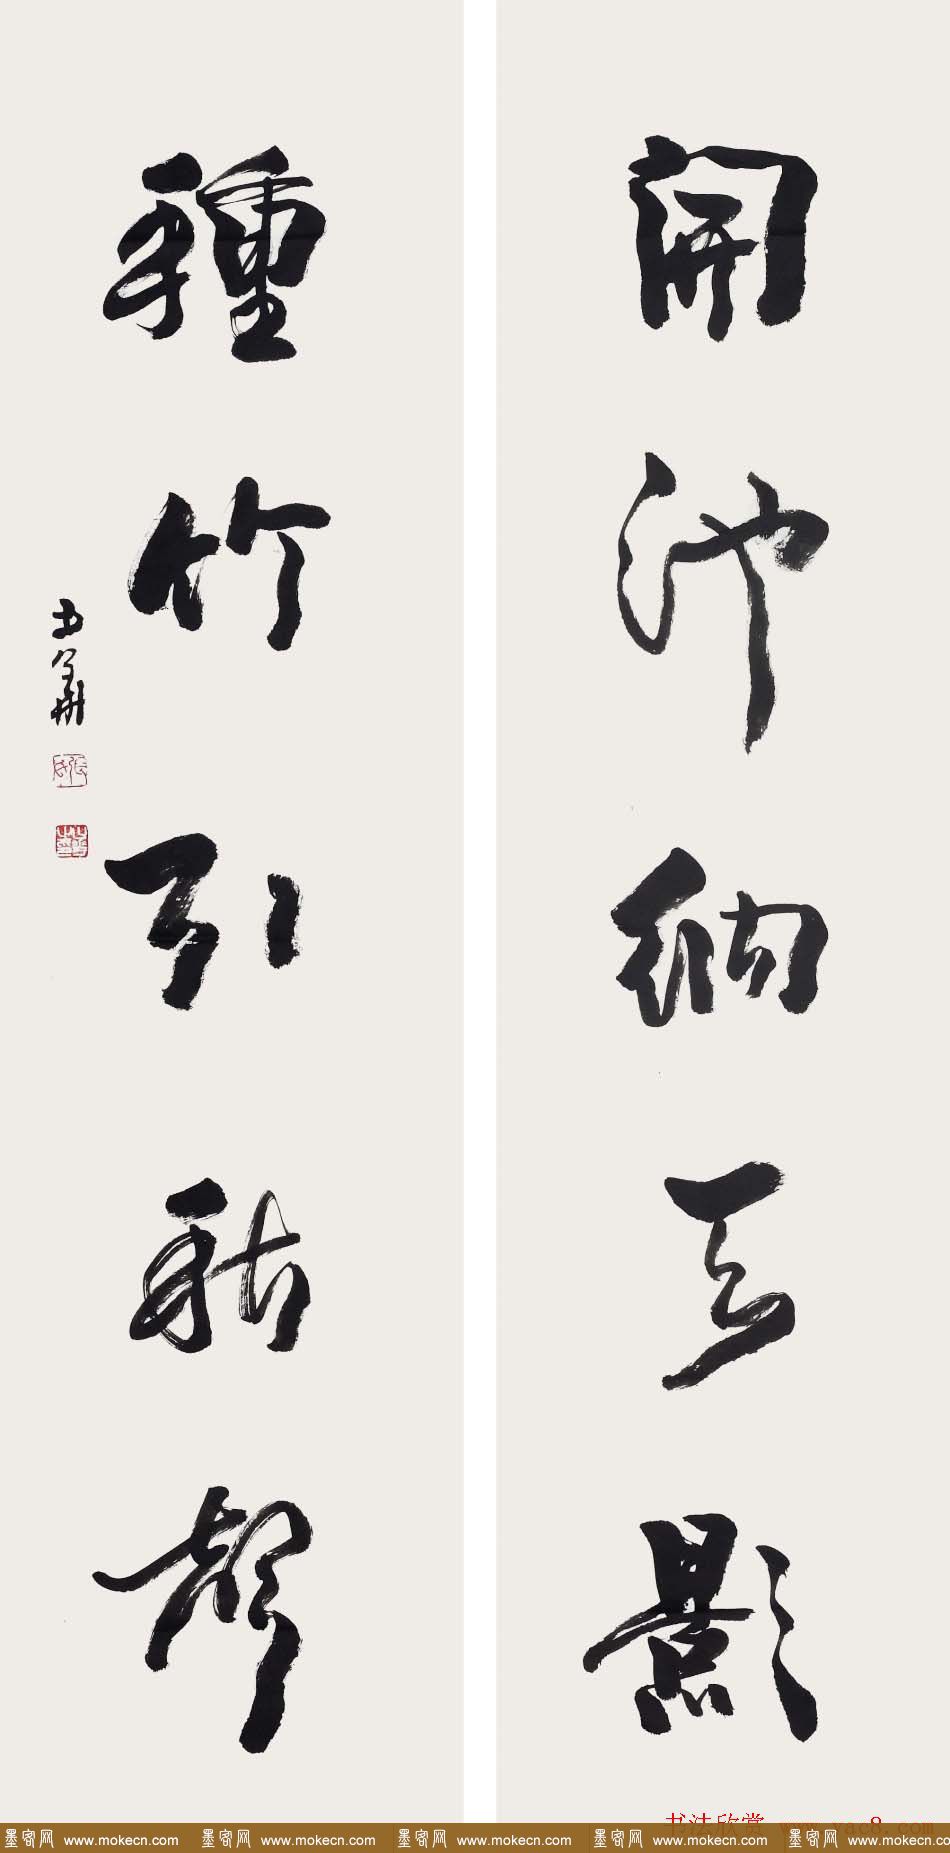 開池納天影
種竹引秋聲
书法欣赏 www.yac8.com
墨客网 www.mokecn.com 墨客网 www.mokecn.com 墨客网 www.mokecn.com 墨客网 www.mokecn.com 墨客网 www.mokecn.co